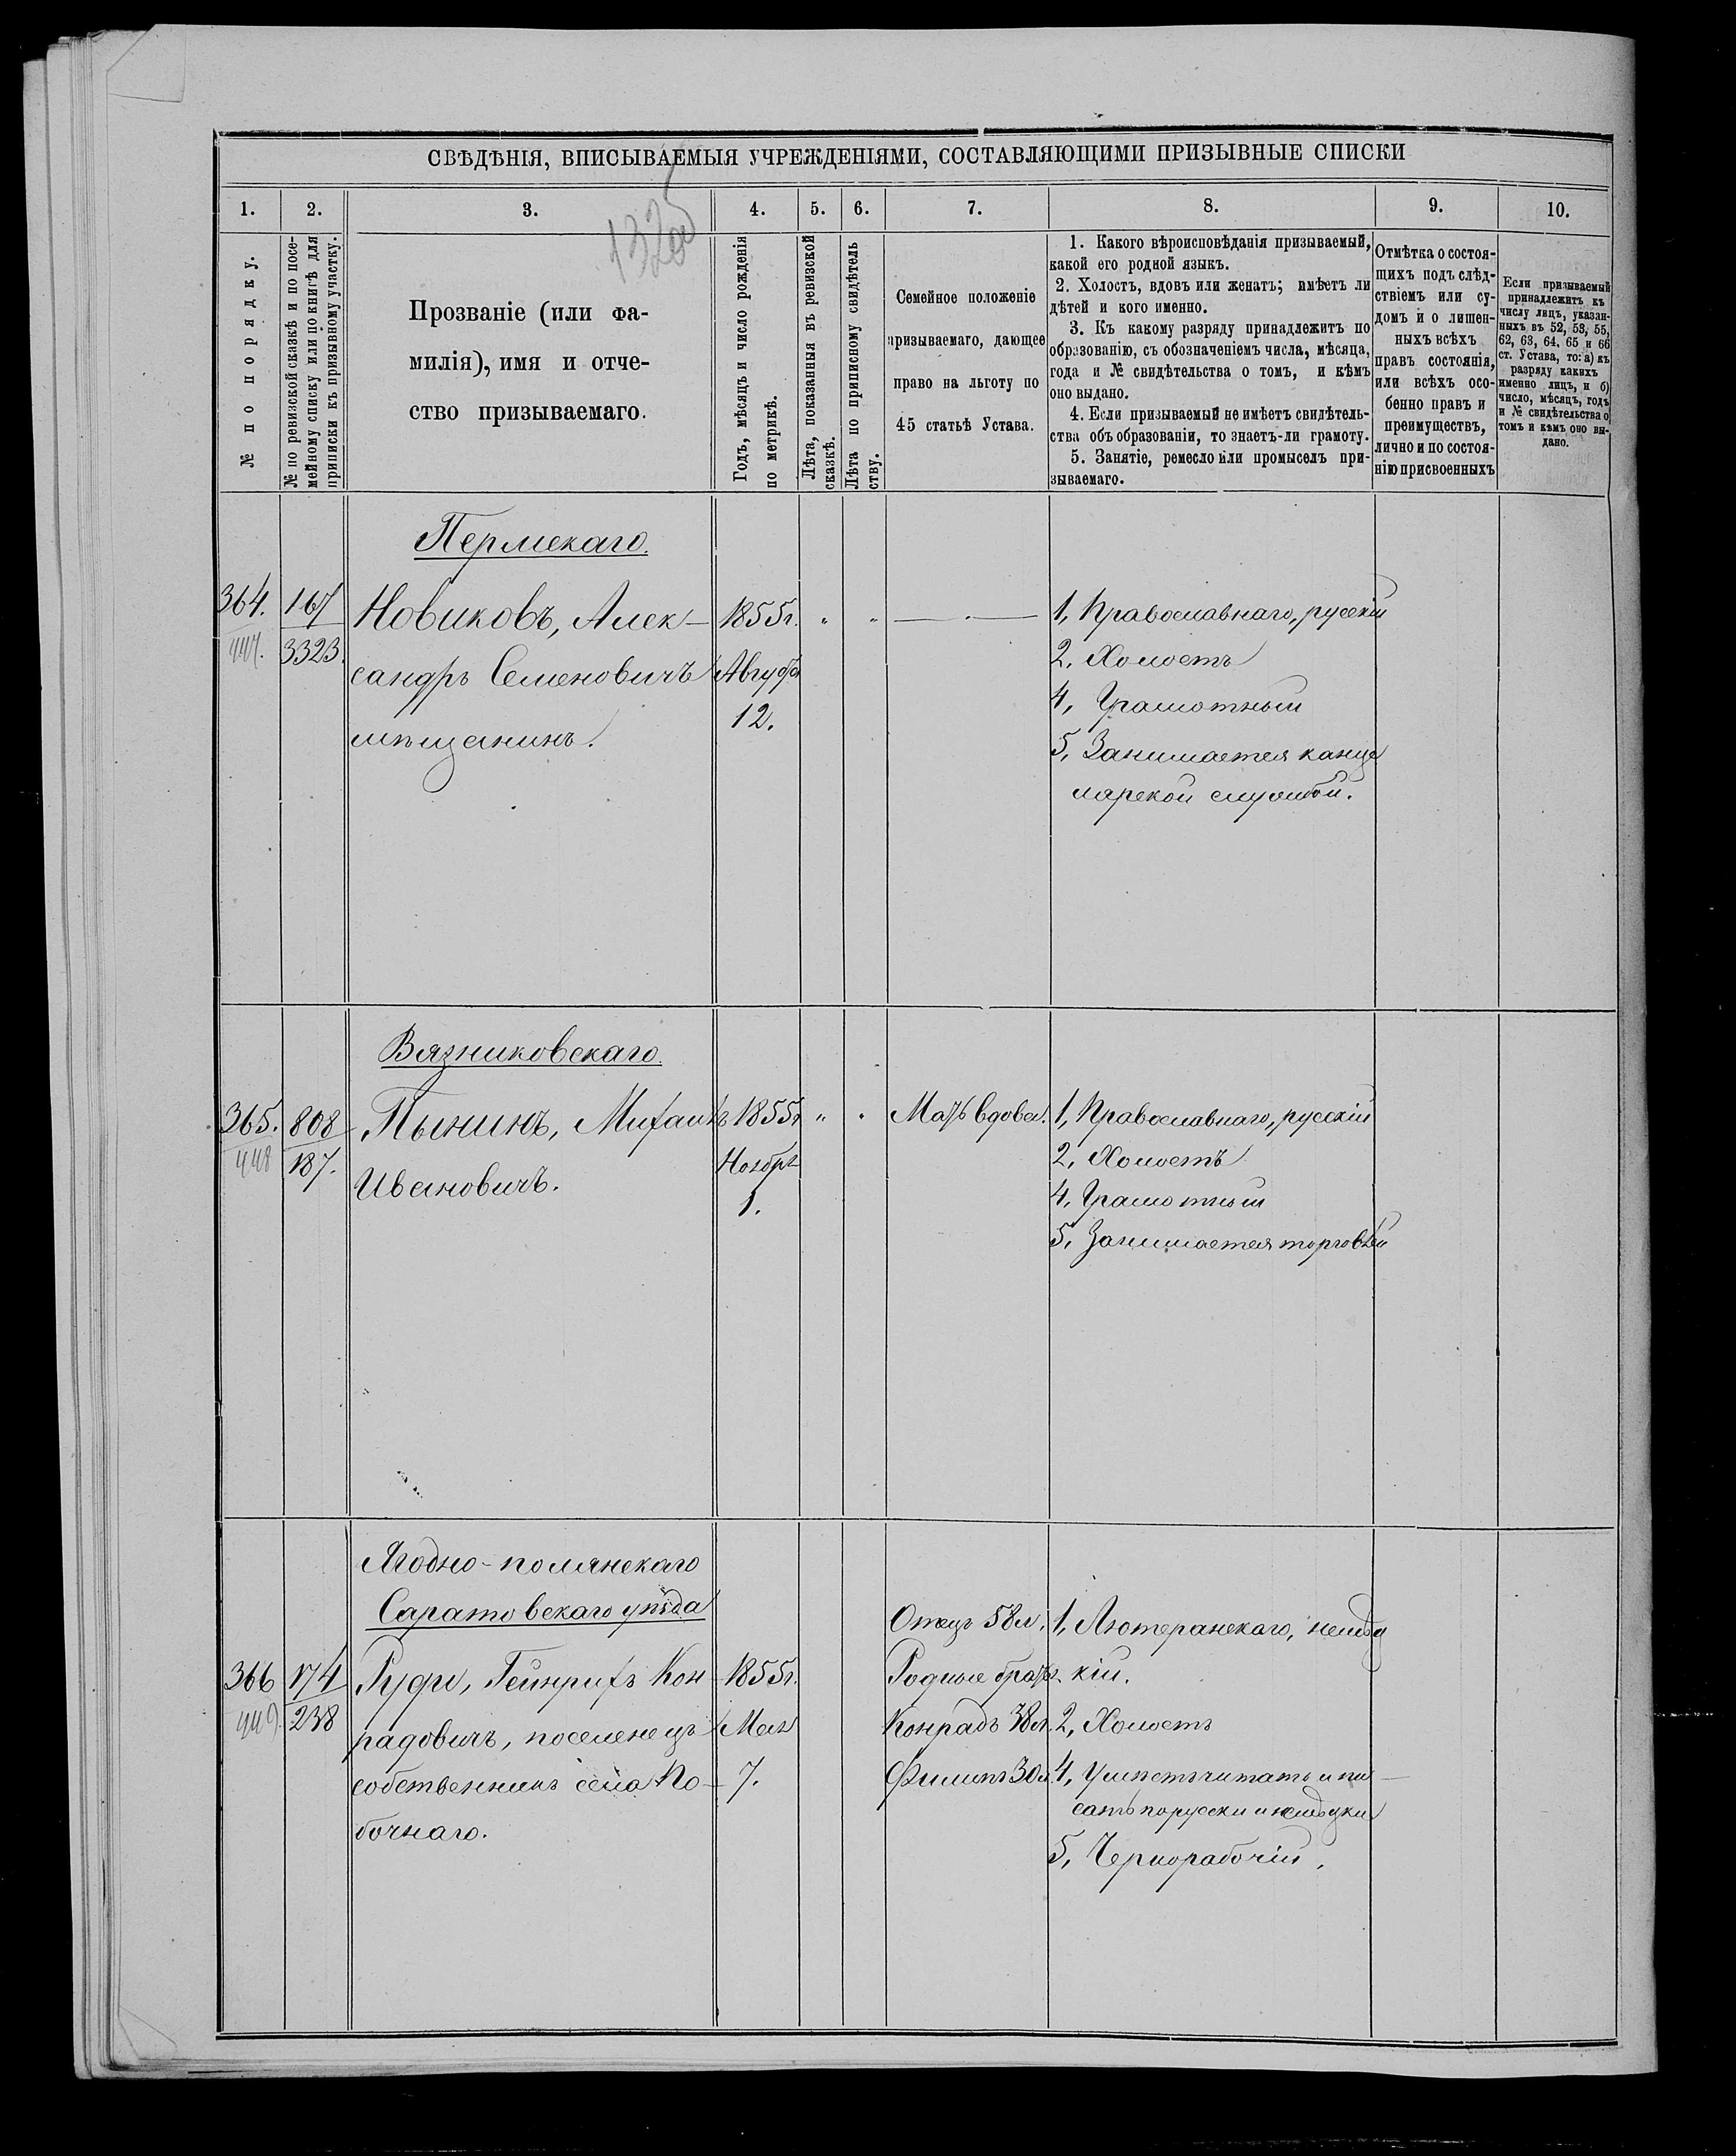 СВѢДѢНІЯ, ВПИСЫВАЕМЫЯ УЧРЕЖДЕНІЯМИ, СОСТАВЛЯЮЩИМИ ПРИЗЫВНЫЕ СПИСКИ
1.
2.
3.
4.
5.
6.
7.
8.
9.
10.
№ по порядку.
№ по ревизской сказкѣ и по посе-
мейному списку или по книгѣ для
приписки къ призывному участку.
Прозваніе (или фа-
милія), имя и отче-
ство призываемаго.
Годъ, мѣсяцъ и число рожденія
по метрикѣ.
Лѣта, показанныя въ ревизской
сказкѣ.
Лѣта по приписному свидѣтель
ству.
Семейное положеніе
призываемаго, дающее
право на льготу по
45 статьѣ Устава.
1. Какого вѣроисповѣданія призываемый,
какой его родной языкъ.
2. Холостъ, вдовъ или женатъ; имѣетъ ли
дѣтей и кого именно.
3. Къ какому разряду принадлежитъ по
образованію, съ обозначеніемъ числа, мѣсяца,
года и № свидѣтельства о томъ, и кѣмъ
оно выдано.
4. Если призываемый не имѣетъ свидѣтель-
ства объ образованіи, то знаетъ-ли грамоту.
5. Занятіе, ремесло или промыселъ при-
зываемаго.
Отмѣтка о состоя-
щихъ подъ слѣд-
ствіемъ или су-
домъ и о лишен-
ныхъ всѣхъ
правъ состоянія,
или всѣхъ осо-
бенно правъ и
преимуществъ,
лично и по состоя-
нію присвоенныхъ
Если призываемый
принадлежитъ къ
числу лицъ, указан-
ныхъ въ 52, 53, 55,
62, 63, 64, 65 и 66
ст. Устава, то: а) къ
разряду какихъ
именно лицъ, и б)
число, мѣсяцъ, годъ
и № свидѣтельства о
томъ и кѣмъ оно вы-
дано.
Пермскаго.
364.
447.
167
3323.
Новиковъ, Алек-
сандръ Семеновичъ
мѣщанинъ.
1855г.
Августа
12.
1, Православнаго, русскій
2, Холостъ
4, Грамотный
5, Занимается канце
лярской службой.
Вязниковскаго.
365.
448
808
187.
Пынинъ, Михаилъ
Ивановичъ.
1855г
Ноября
1.
Мать вдова.
1, Православнаго, русскій
2, Холостъ
4, Грамотный
5, Занимается торговлей
Ягодно-полянскаго
Саратовскаго уѣзда
366
449.
174
238
Руди, Гейнрихъ Кон-
радовичъ, поселенецъ
собственникъ села По-
бочнаго.
1855г.
Мая
7.
Отецъ 58л.
Родные братья
Конрадъ 38л.
Филипъ 30л.
1, Лютеранскаго, немец
кій.
2, Холостъ
4, Умѣетъ читать и пи-
сать по русски и немецки
5, Чернорабочій.